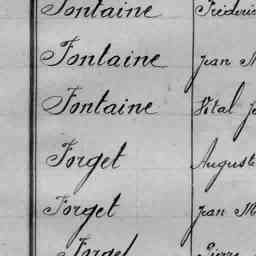 Fontaine Frédéric
Fontaine Jean M
Fontaine Vital J
Forget Auguste
Forget Jean M
Forget Pierre